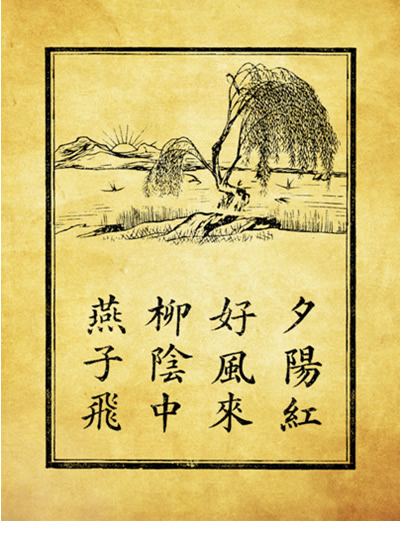 夕陽紅
好風來
柳陰中
燕子飛